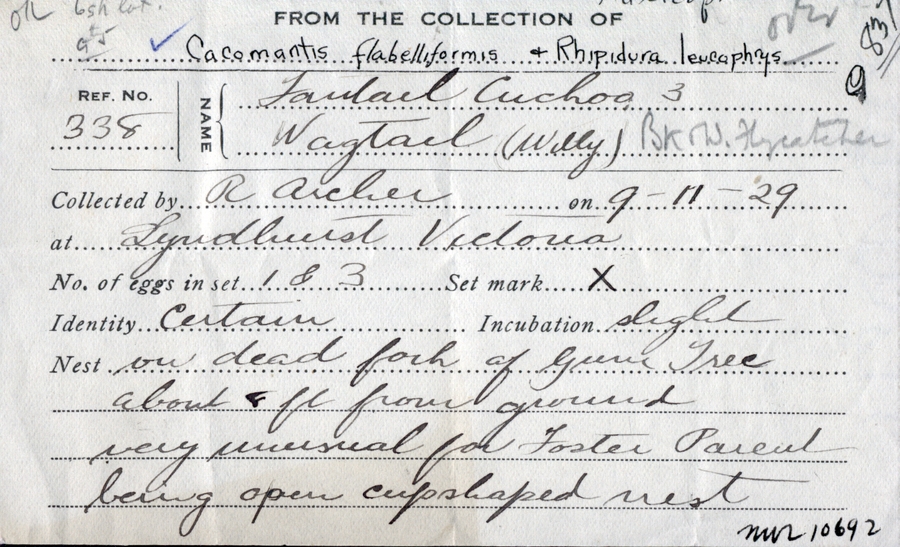 FROM THE COLLECTION OF
Cacomantis flabelliformis & Rhipidura leucophrys
REF. No.
338
NAME
Fantael Cuckoo 3
Wagtael (Willy) Bk & W. Flycatcher
Collected by R Archer on 9-11-29
at Lyndhurst Victoria
No. of eggs in set 1 & 3 Set mark X
Identity Certain Incubation slight
Nest on dead fork of Gum Tree
about 8 ft from ground
very unusual for Foster Parent
being open cupshaped nest